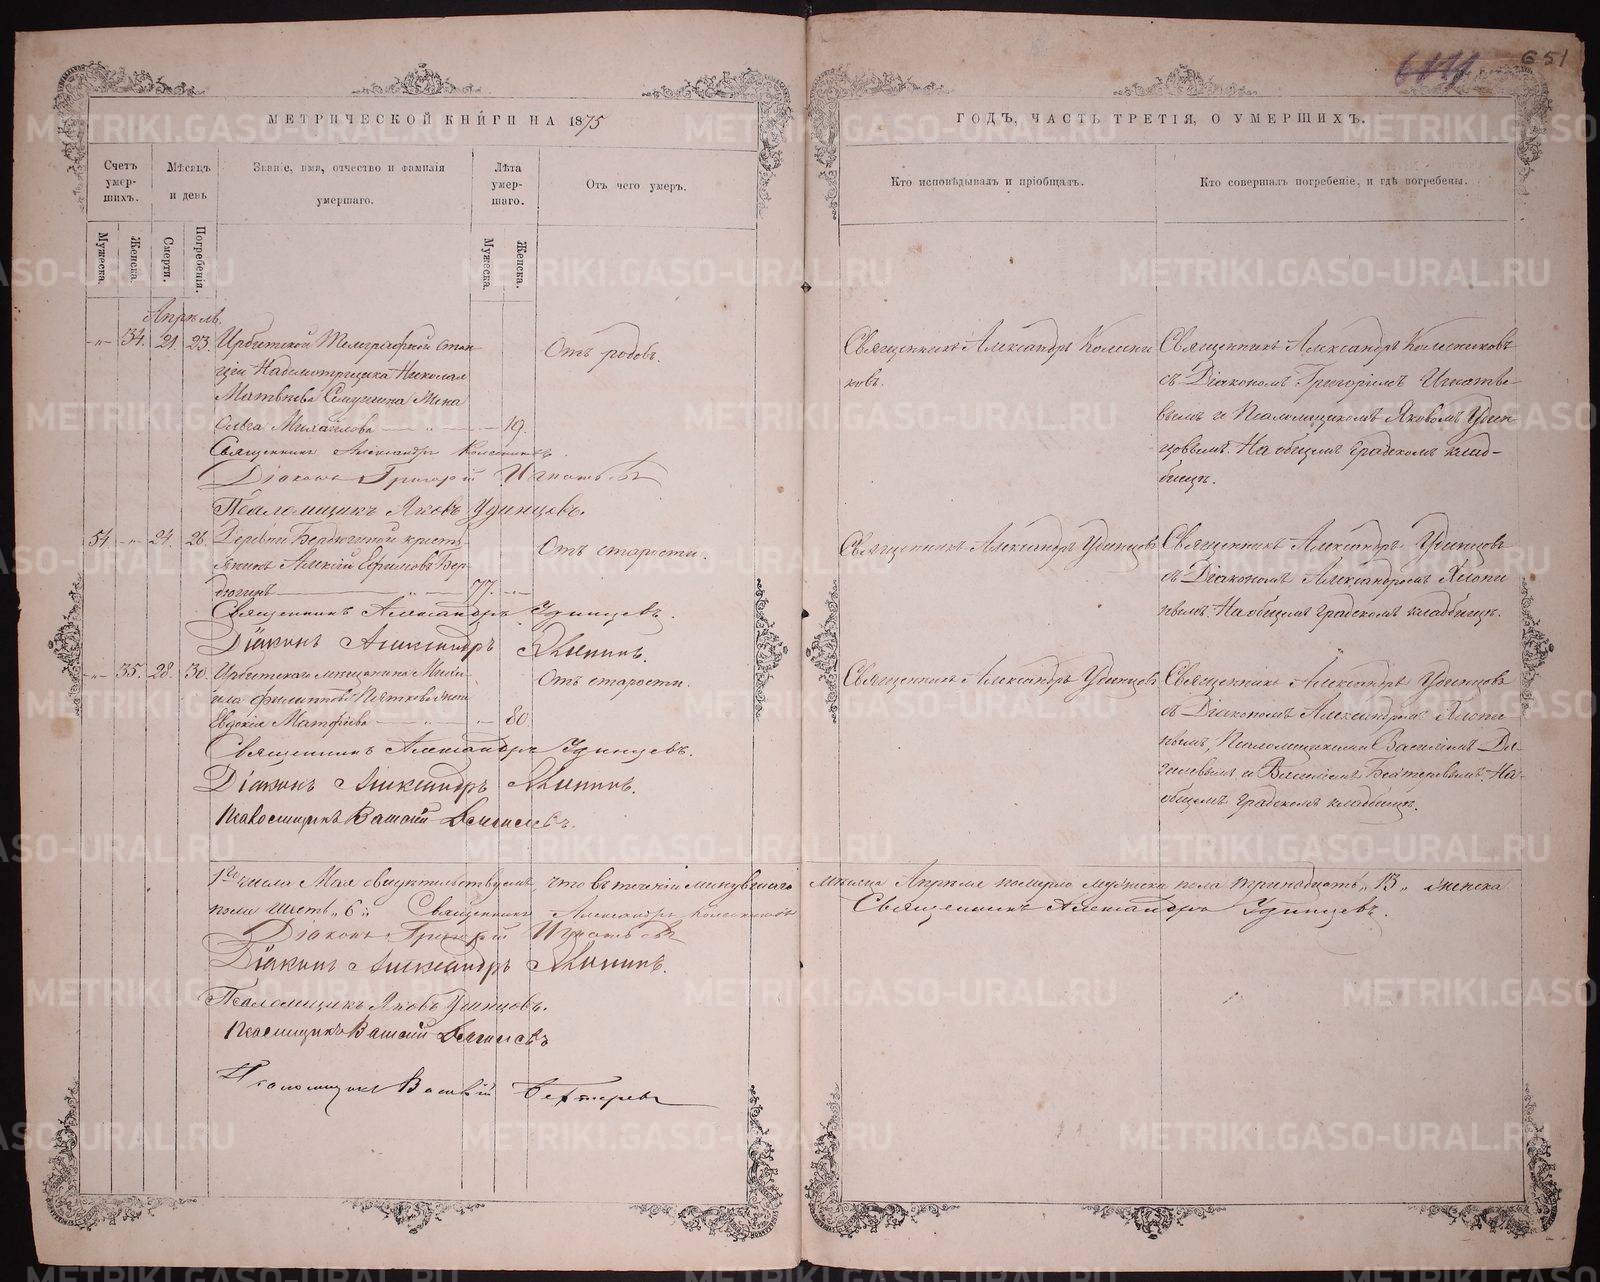 651
МЕТРИЧЕСКОЙ КНИГИ НА 1875
ГОДЪ, ЧАСТЬ ТРЕТІЯ, О УМЕРШИХЪ.
Счетъ умер-шихъ.
Мѣсяцъ и день
Званіе, имя, отчество и фамилія умершаго.
Лѣта умер-шаго.
Отъ чего умеръ.
Кто исповѣдывалъ и пріобщалъ.
Кто совершалъ погребеніе, и гдѣ погребены.
Мужеска.
Женска.
Смерти.
Погребенія.
Мужеска.
Женска.
Апрѣль.
-"- 34. 21. 23. Ирбитской Телеграфной стан
ціи Надсмотрщика Николая
Матвѣева жена
Ольга Михайлова — " — 19.
Отъ родовъ.
Священникъ Александръ Колесни
ковъ.
Священникъ Александръ Колесниковъ
съ Діакономъ Григоріемъ Игнатье
вымъ и Псаломщикомъ Яковомъ Удин
цовымъ. На общемъ градскомъ клад-
бищѣ.
Священникъ Александръ Колесниковъ.
Діаконъ Григорій Игнатьевъ
Псаломщикъ Яковъ Удинцовъ.
54. -"- 24. 26. Деревни Бердюгиной кресть-
янинъ Алексій Ефимовъ Бер-
дюгинъ — " — 77. -"-
Отъ старости.
Священникъ Александръ Удинцовъ
Священникъ Александръ Удинцовъ
съ Діакономъ Александромъ
На общемъ градскомъ кладбищѣ.
Священникъ Александръ Удинцевъ.
Діаконъ Александръ
-"- 35. 28. 30. Ирбитскаго мѣщанина Миха-
ила Филиппова жена
Евдокія Матфіева — " — " — 80.
Отъ старости.
Священникъ Александръ Удинцовъ
Священникъ Александръ Удинцовъ
съ Діакономъ Александромъ
Псаломщиками Василіемъ Дя-
гилевымъ и Василіемъ На-
общемъ градскомъ кладбищѣ.
Священникъ Александръ Удинцевъ.
Діаконъ Александръ
Псаломщикъ Василій Дягилевъ.
1го числа Мая свидѣтельствуемъ, что въ теченіи минувшаго мѣсяца Апрѣля померло мужеска пола тринадцать "13" женска
пола шесть "6". Священникъ Александръ Колесниковъ Священникъ Александръ Удинцевъ.
Діаконъ Григорій Игнатьевъ
Діаконъ Александръ
Псаломщикъ Яковъ Удинцовъ.
Псаломщикъ Василій Дягилевъ
Псаломщикъ Василій